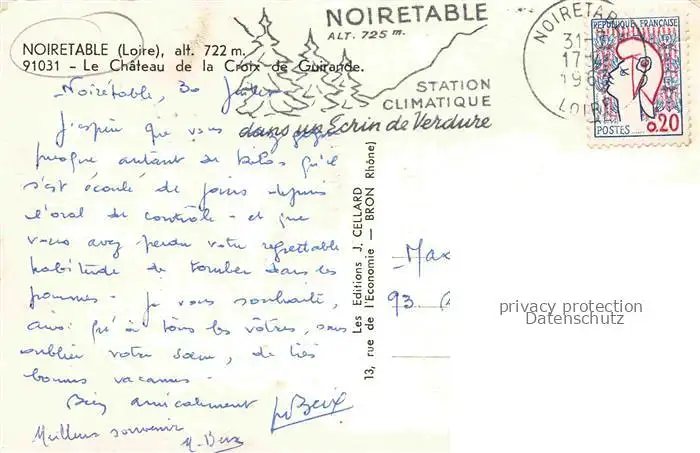 NOIRETABLE (Loire), alt. 722 m.
91031 - Le Château de la Croix de Guirande.
NOIRETABLE
ALT. 725 m.
STATION
CLIMATIQUE
dans un Ecrin de Verdure
NOIRETABLE
31-
17
196
LOIRE
REPUBLIQUE FRANÇAISE
POSTES
0,20
Noirétable, 30 Juillet
J'espère que vous avez gagné
presque autant de kilos qu'il
s'est écoulé de jours depuis
l'oral de contrôle - et que
vous avez perdu votre regrettable
habitude de tomber dans les
pommes - Je vous souhaite,
ainsi qu'à tous les vôtres, sans
oublier votre sœur, de très
bonnes vacances -
Bien amicalement
Meilleur souvenir
Les Editions J. CELLARD
13, rue de l'Economie — BRON (Rhône)
Max
93
privacy protection
Datenschutz